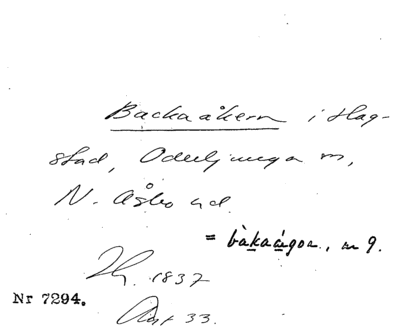 Backaåkern i Hag-
stad, Oderljunga sn,
N. Åsbo hd.
= bàkaágoa., m 9.
1837
Nr 7294.
33.